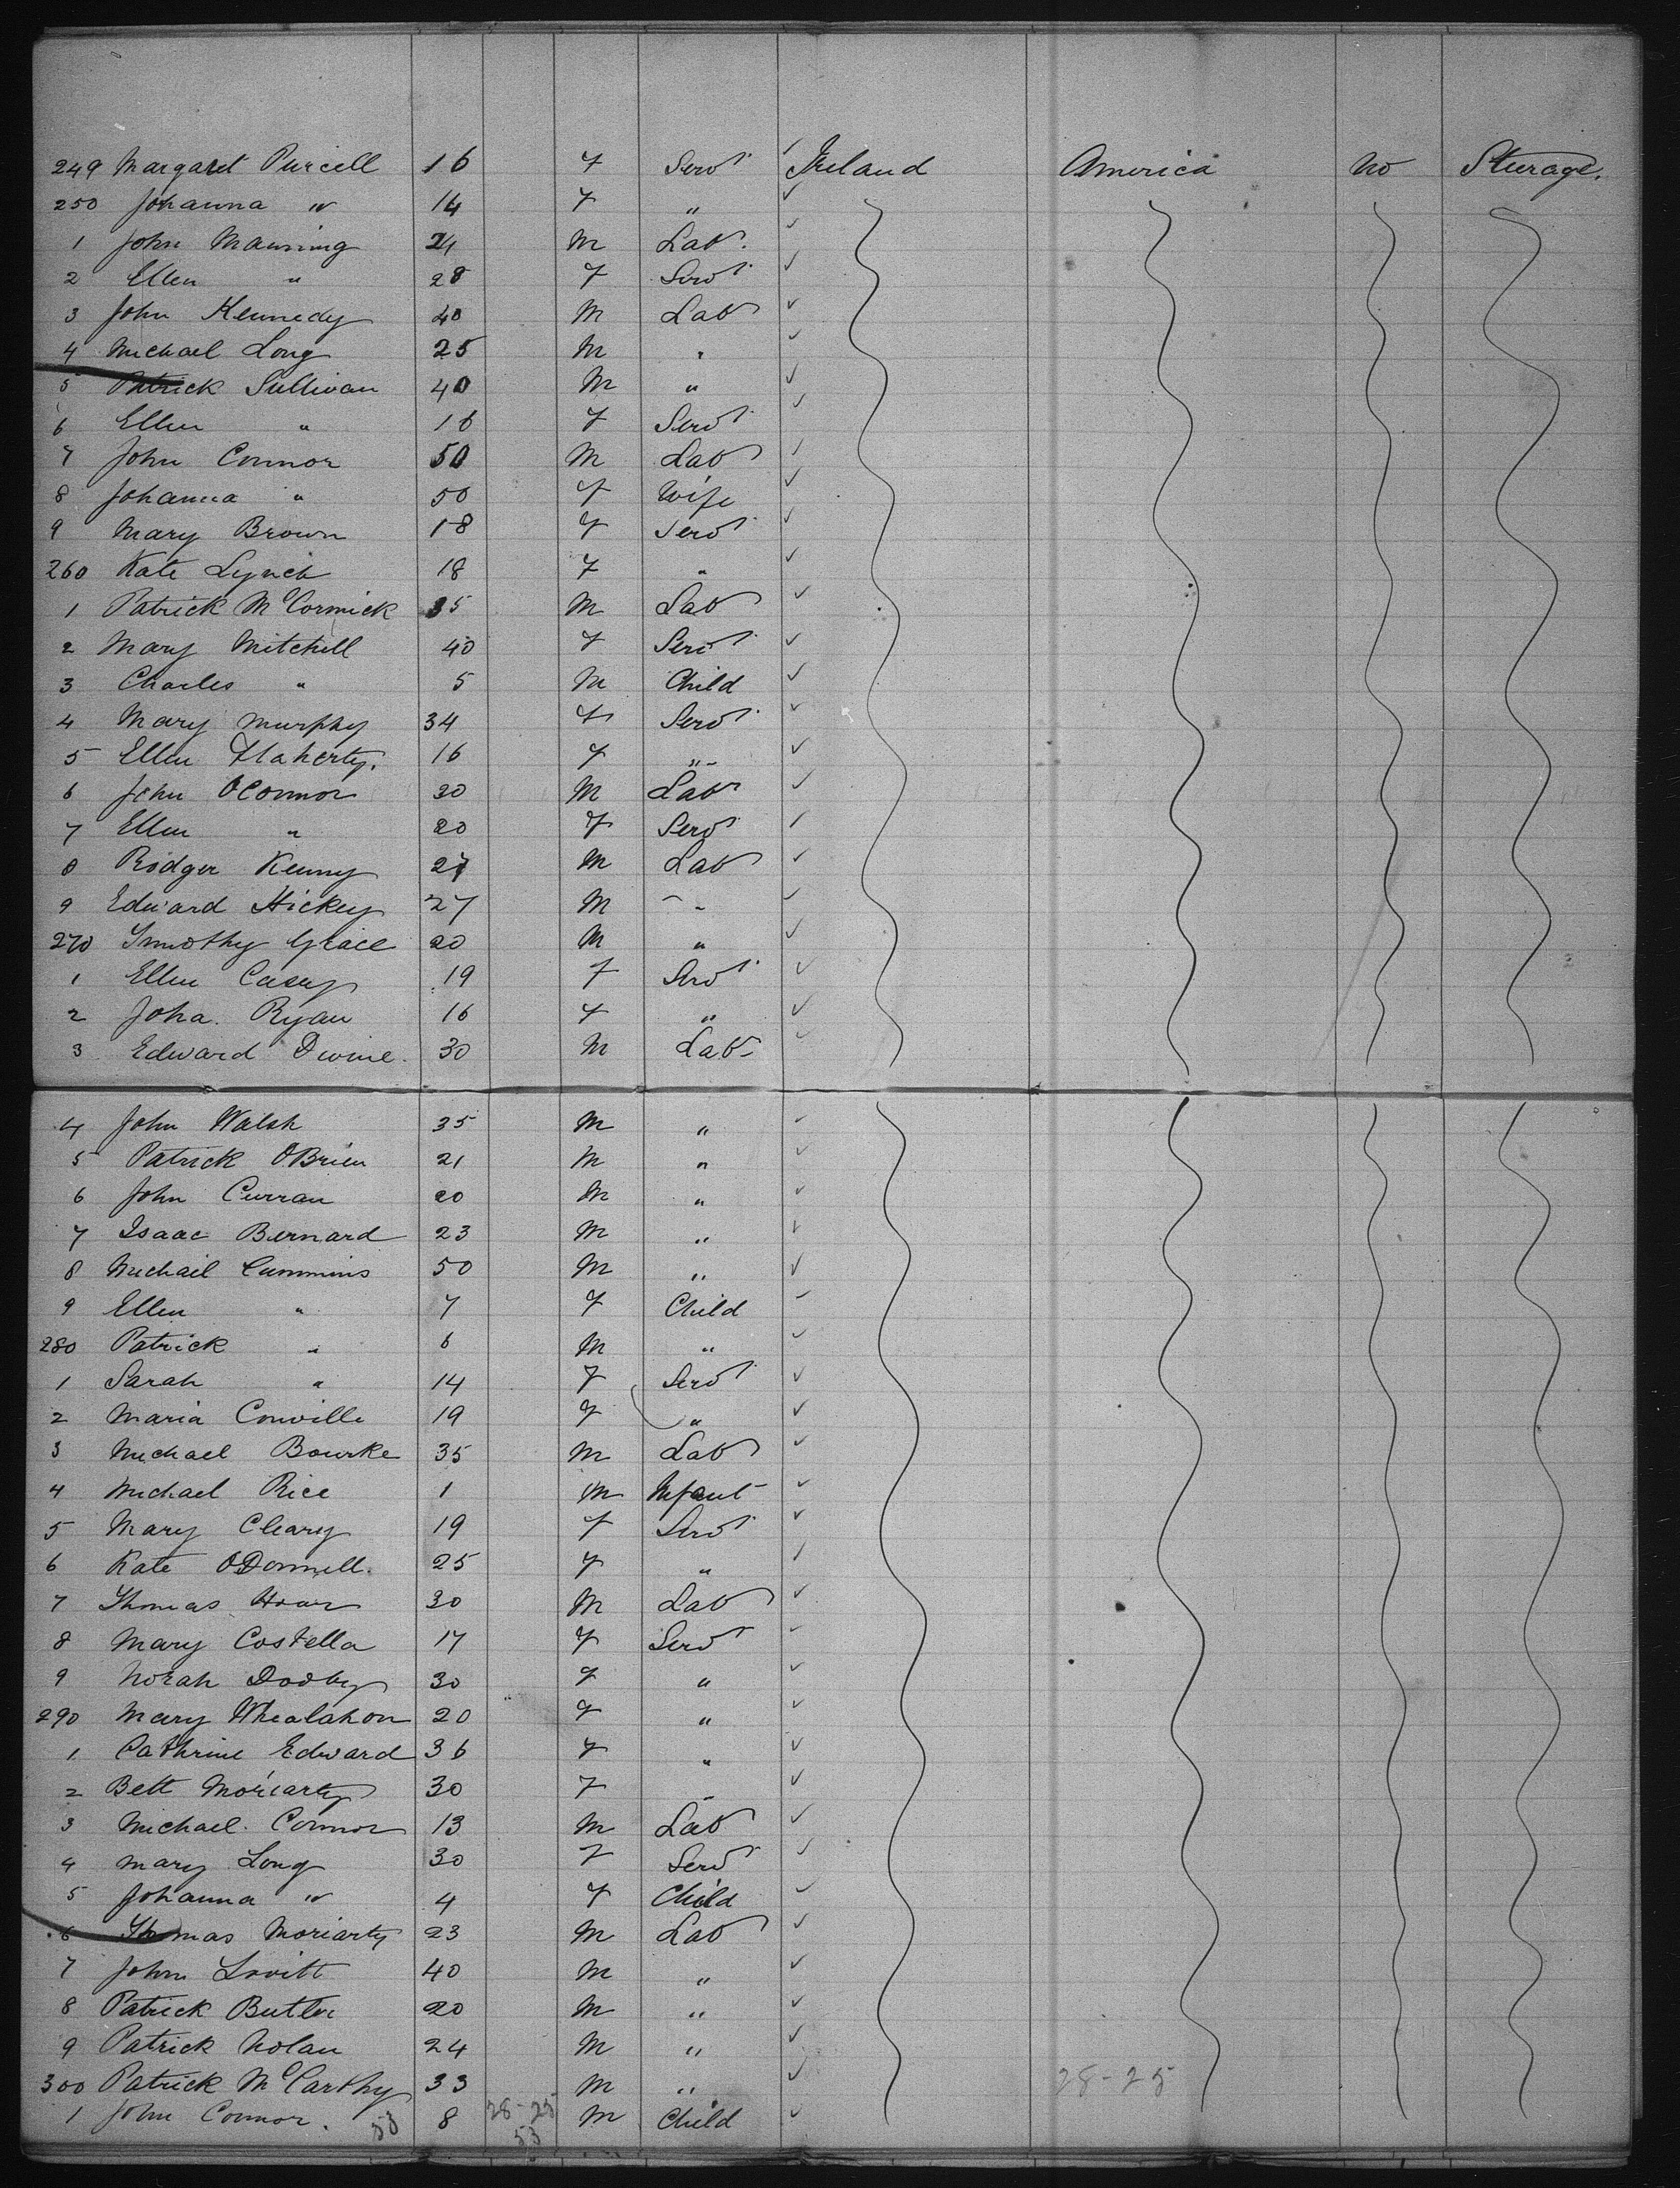 249 Margaret Purcell 16 F Servt Ireland America No Steerage.
250 Johanna " 14 F "
1 John Manning 24 M Lab.
2 Ellen " 28 F Servt
3 John Kennedy 40 M Lab
4 Michael Long 25 M "
5 Patrick Sullivan 40 M "
6 Ellen " 16 F Servt
7 John Connor 50 M Lab
8 Johanna " 50 F Wife
9 Mary Brown 18 F Servt
260 Kate Lynch 18 F "
1 Patrick McCormick 35 M Lab
2 Mary Mitchell 40 F Servt
3 Charles " 5 M Child
4 Mary Murphy 34 F Servt
5 Ellen Flaherty. 16 F "
6 John OConnor 30 M Labr
7 Ellen " 20 F Servt
8 Rodger Kenny 27 M Lab
9 Edward Hickey 27 M "
270 Timothy Grace 20 M "
1 Ellen Casey 19 F Servt
2 Joha. Ryan 16 F "
3 Edward Divine. 30 M Lab
4 John Walsh 35 M "
5 Patrick OBrien 21 M "
6 John Curran 20 M "
7 Isaac Bernard 23 M "
8 Michail Cummins 50 M "
9 Ellen " 7 F Child
280 Patrick " 6 M "
1 Sarah " 14 F Servt
2 Maria Conville 19 F "
3 Michael Bourke 35 M Lab
4 Michael Rice 1 M Infant
5 Mary Cleary 19 F Servt
6 Kate ODonnell. 25 F "
7 Thomas Hoar 30 M Lab
8 Mary Costella 17 F Servt
9 Norah 30 F "
290 Mary Whealahon 20 F "
1 Cathrine Edward 36 F "
2 Bett Moriarty 30 F "
3 Michael. Connor 13 M Lab
4 Mary Long 30 F Servt
5 Johanna " 4 F Child
6 Thomas Moriarty 23 M Lab
7 John Lovitt 40 M "
8 Patrick Butler 20 M "
9 Patrick Nolan 24 M "
300 Patrick McCarthy 33 M " 28-25
1 John Connor. 53 8 28-25 M Child
53